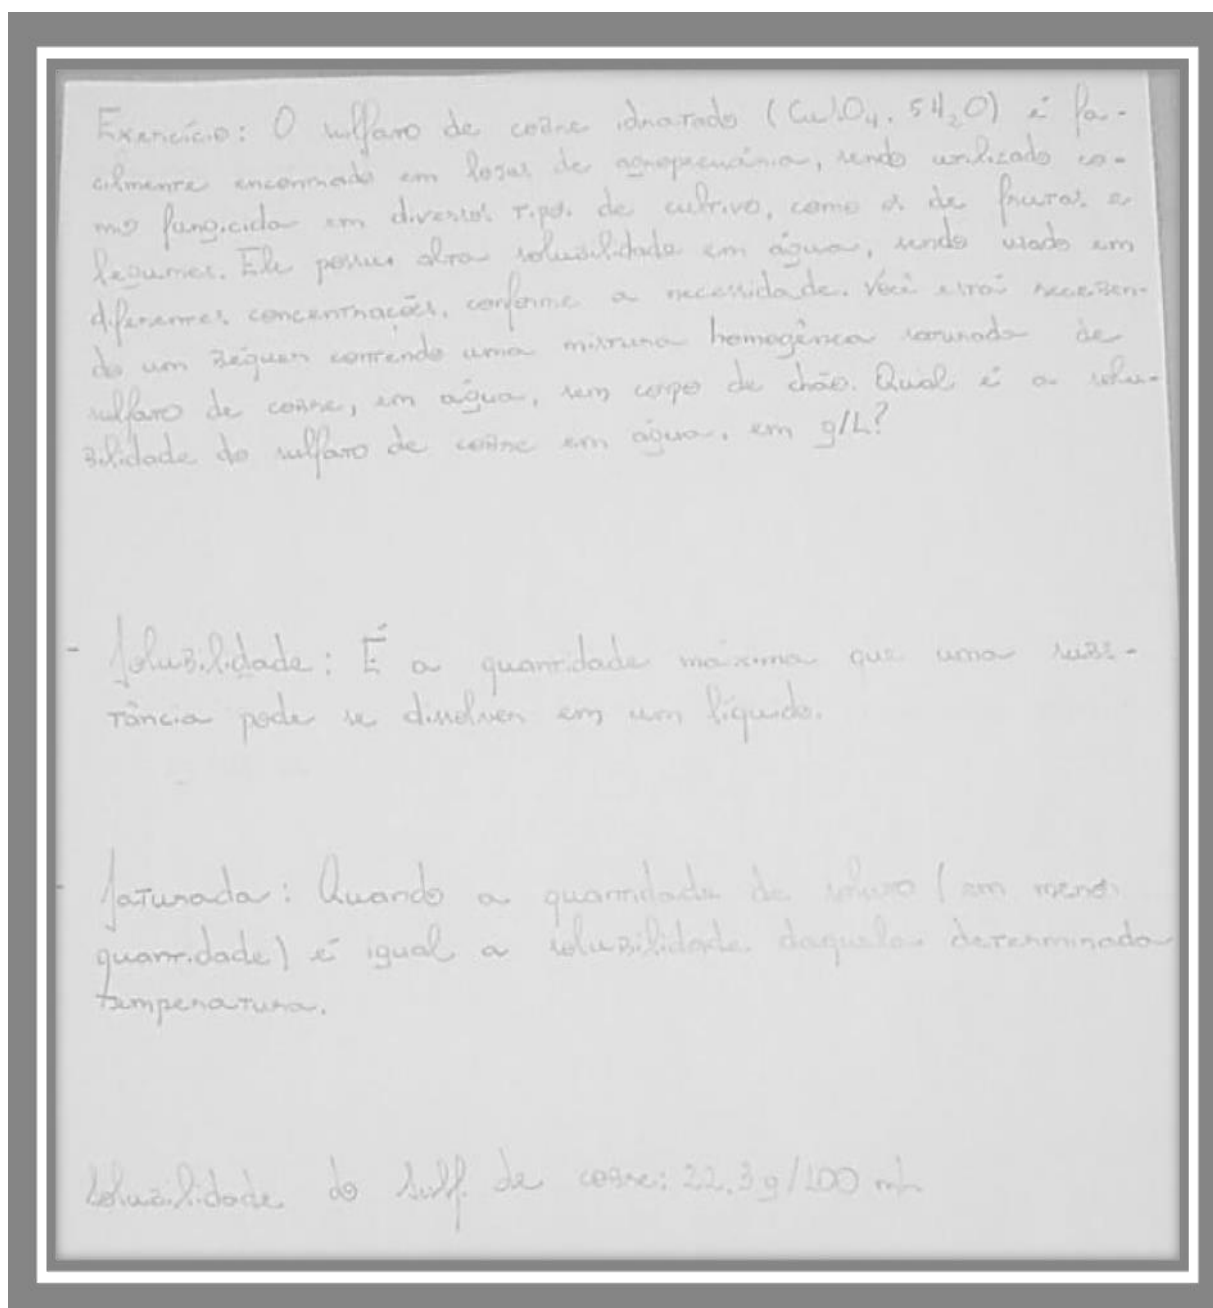 Exercício: O sulfato de cobre idratado (CuSO4. 5H2O) é fa-
cilmente encontrado em lojas de agropecuária, sendo utilizado co-
mo fungicida em diversos tipos de cultivo, como o de frutas e
legumes. Ele possui alta solubilidade em água, sendo usado em
diferentes concentrações, conforme a necessidade. Você está receben-
do um béquer contendo uma mistura homogênea saturada de
sulfato de cobre, em água, sem corpo de chão. Qual é a solu-
bilidade do sulfato de cobre em água, em g/L?
- Solubilidade: É a quantidade máxima que uma subs-
tância pode se dissolver em um líquido.
- Saturada: Quando a quantidade de soluto (em menor
quantidade) é igual a solubilidade daquela determinada
temperatura.
Solubilidade do Sulf. de cobre: 22,3g/100 mL